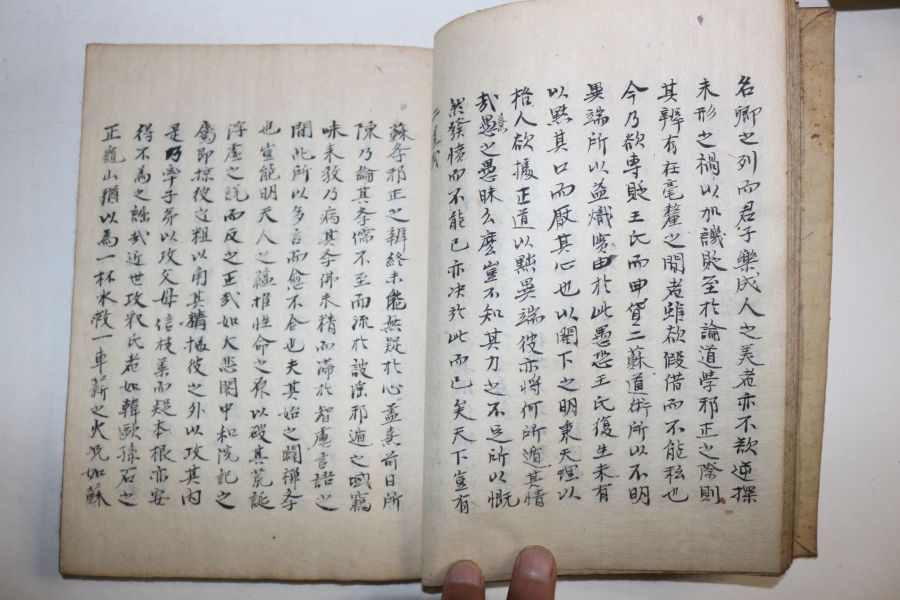 名卿之列而君子樂成人之美者亦不欲逆探
未形之禍以加譏貶至於論道學邪正之際則
其辨有在毫釐之間者雖欲假借而不能私也
今乃欲專貶王氏而申貸二蘇道術所以不明
異端所以益熾實由於此愚恐王氏復生未有
以默其口而厭其心也以閤下之明秉天理以
格人欲據正道以黜異端彼亦將何所遁其情
哉愚之愚昧么麼豈不知其力之不足所以慨
熹
然發憤而不能已亦決於此而已矣天下豈有
二道哉
蘇斈邪正之辨終未能無疑於心盖熹前日所
陳乃論其斈儒不至而流於詖淫邪遁之域竊
味来教乃病其斈佛未精而滯於智慮言語之
間此所以多言而愈不合也夫其始之闢禪斈
也豈能明天人之蘊推性命之原以破其荒誕
浮虛之說而反之正哉如大悲閣中和院記之
屬即掠彼之粗以角其精據彼之外以攻其内
是乃率子弟以攻父母信枝葉而疑本根亦安
得不為之詘哉近世攻釈氏者如韓歐孫石之
正龜山猶以為一杯水救一車薪之火况如蘇